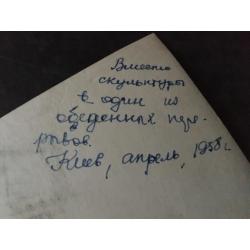 Вместо
скульптуры
в один из
обеденных пере-
рывов.
Киев, апрель, 1958 г.